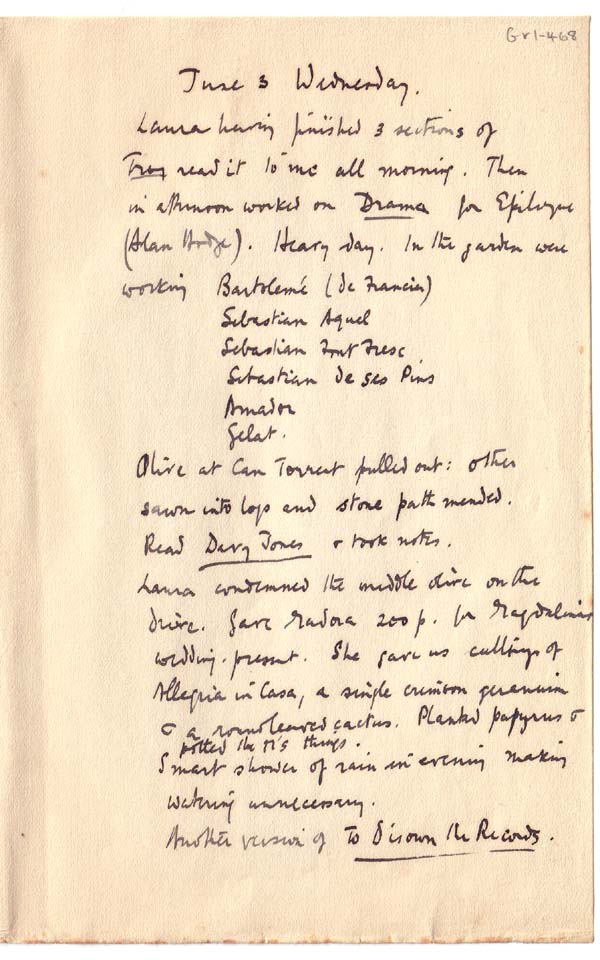 Gr1-468
June 3 Wednesday.
Laura having finished 3 sections of
Troy read it to me all morning. Then
in afternoon worked on Drama for Epilogue
(Alan Hodge). Heavy day. In the garden were
working Bartolemé (de Francia)
Sebastian Aquel
Sebastian Font Fresc
Sebastian de ses Pins
Amador
Gelat.
Olive at Can Torrent pulled out: other
sawn into logs and stone path mended.
Read Davy Jones & took notes.
Laura condemned the middle olive on the
drive. Gave Madora 200 p. for Magdalena's
wedding. present. She gave us cuttings of
Allegria in Casa, a single crimson geranium
& a roundleaved cactus. Planted papyrus &
potted the M's things.
Smart shower of rain in evening making
watering unnecessary.
Another version of To Disown the Records.